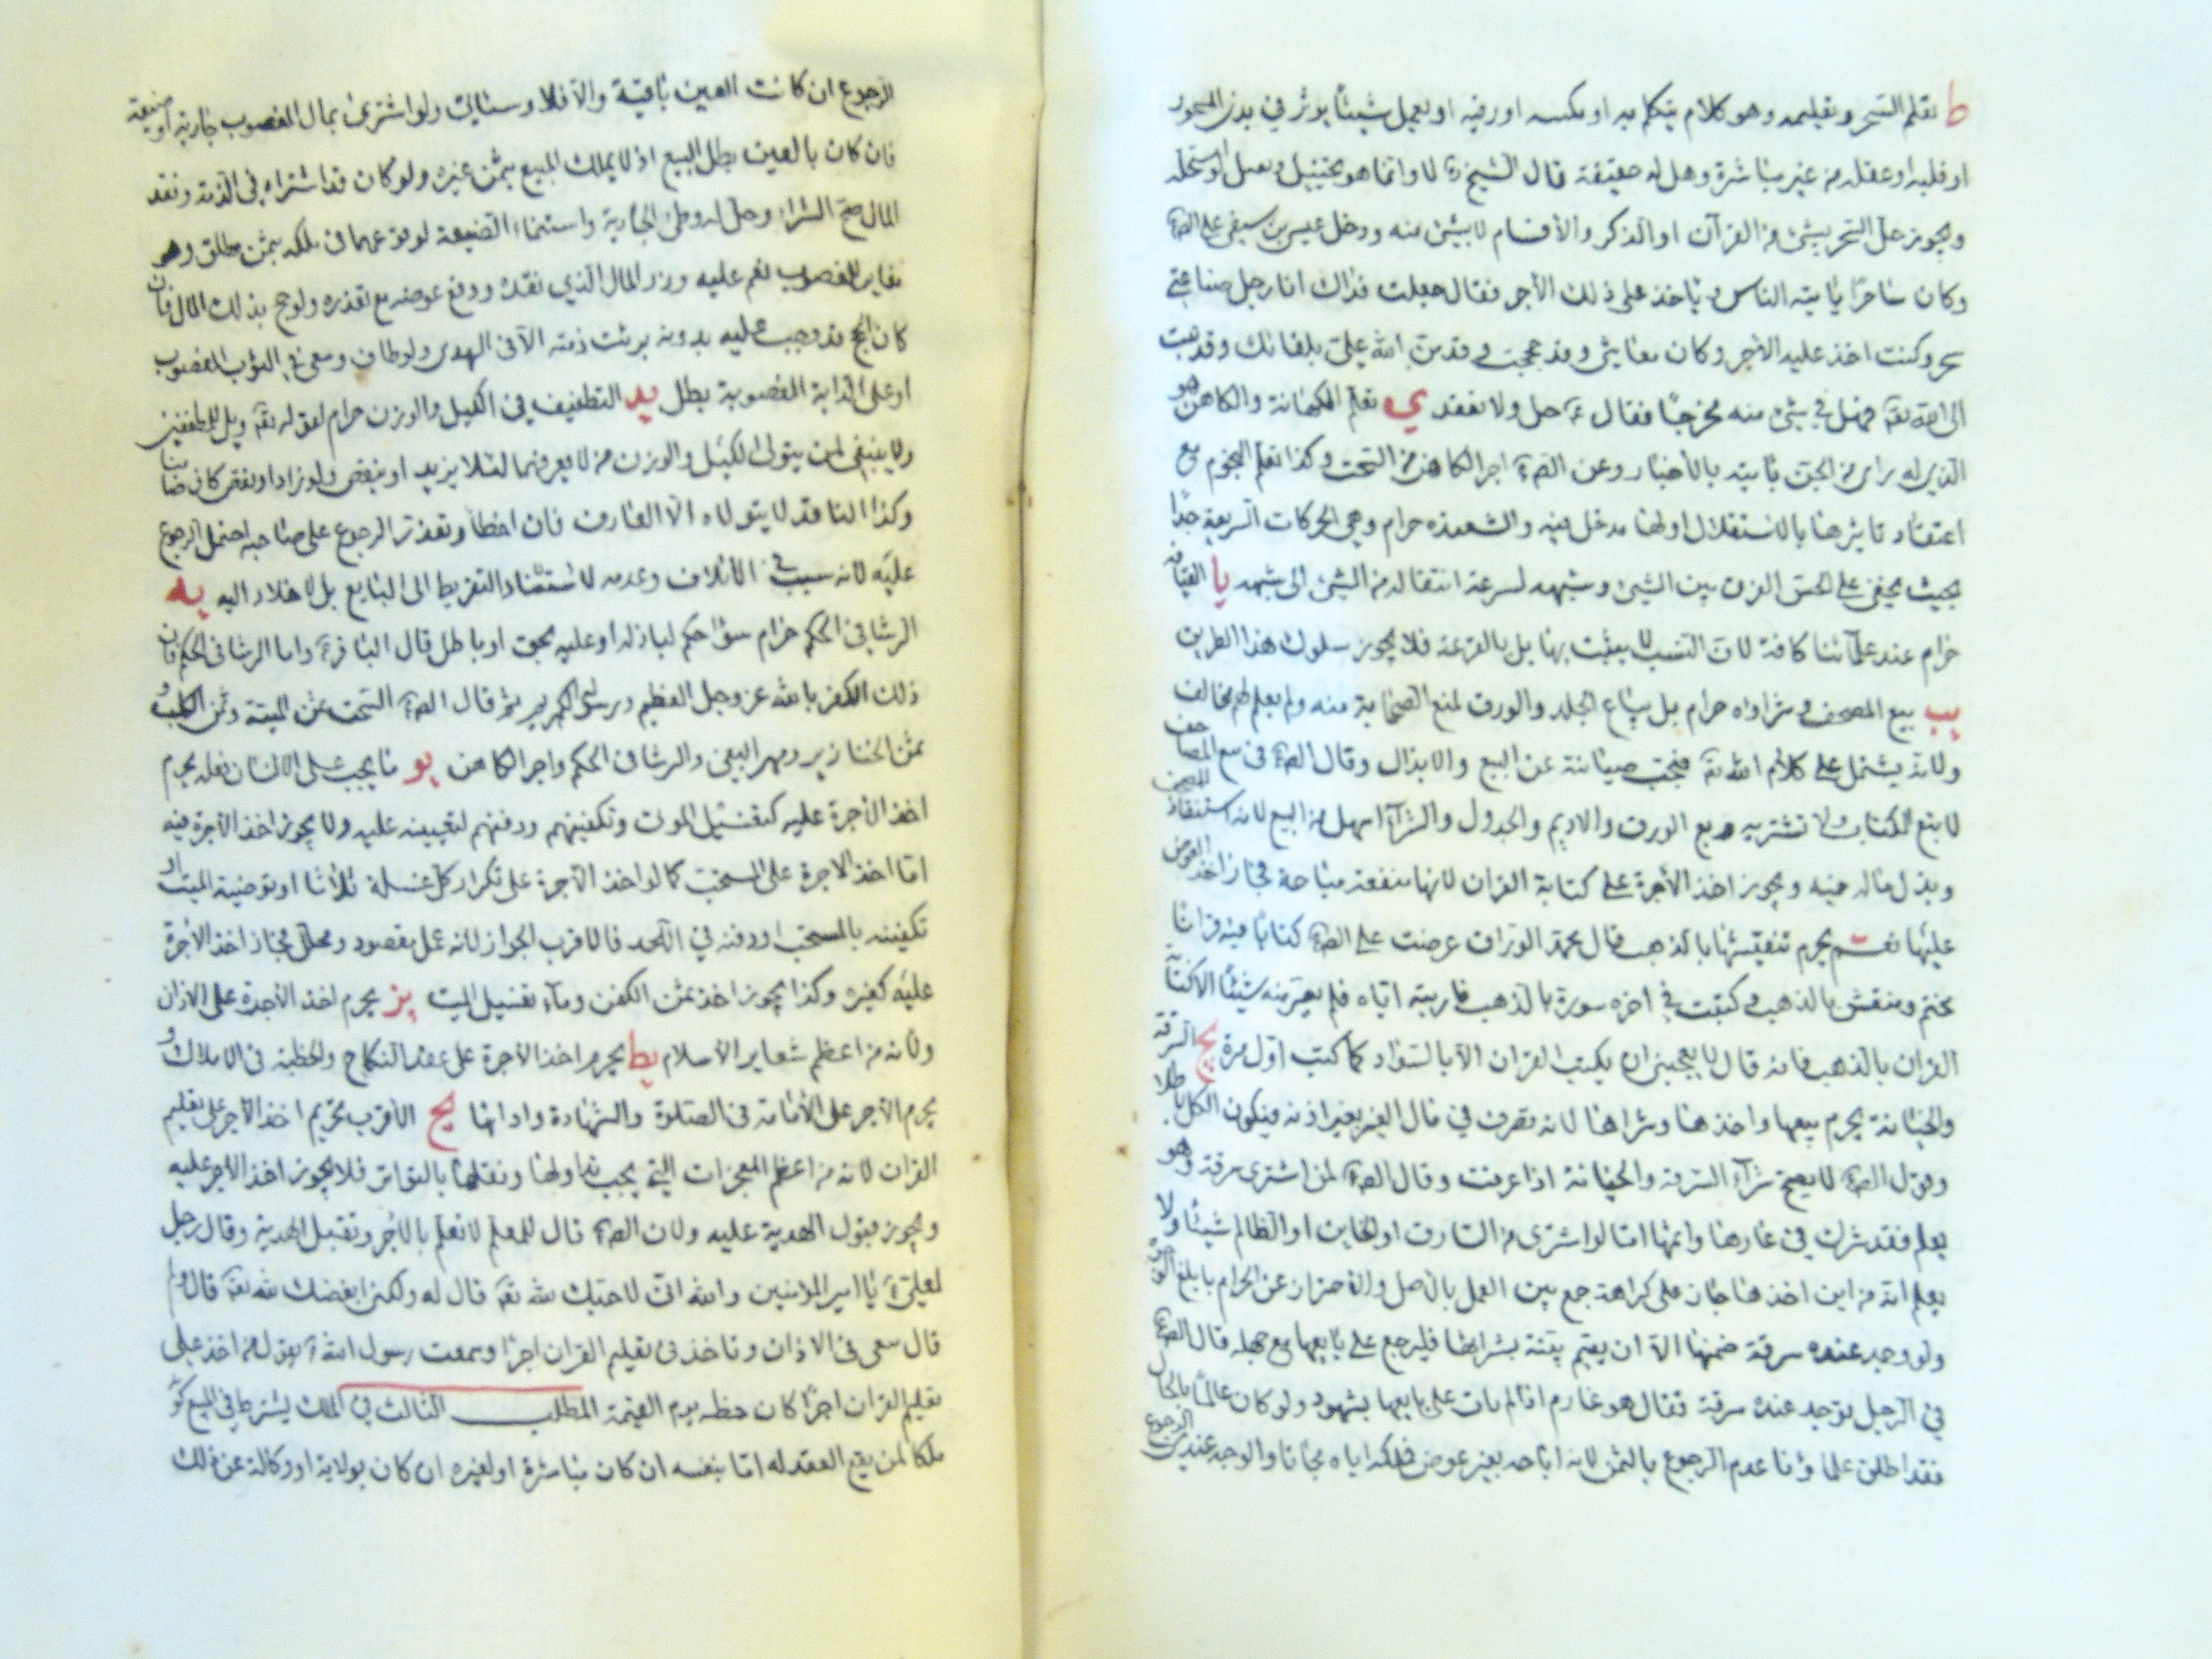 ط تعلم السحر وتعليمه وهو كلام يتكلم به او يكتبه او رقيه او يعمل شيئا يوثر في بدن المسحور
او قلبه او عقله من غير مباشرة وهل له حقيقة قال الشيخ ره لا وانما هو تخييل ويقتل لو استحله
ويجوز حل السحر بشئ من القرآن او الذكر والأقسام لا بشئ منه ودخل عيسى بن سيفى على الصادق
وكان ساحرا ياتيه الناس وياخذ على ذلك الأجر فقال جعلت فداك انا رجل صناعتي
سحر وكنت اخذ عليه الأجر وكان معاشي وقد حججت وقد من الله علي بلقائك وقد تبت
الى الله تعه فهل لي في شئ منه مخرجا فقال ع حل ولا تعقد ي تعلم الكهانة والكاهن هو
الذي له راى من الجن ياتيه بالأخبار وعن الصادق اجر الكاهن من السحت وكذا تعلم النجوم مع
اعتقاد تاثيرها بالاستقلال او لها مدخل فيه والشعبذه حرام وهي الحركات السريعة جدا
بحيث يخفى على الحس الفرق بين الشئ وشبهه لسرعة انتقاله من الشئ الى شبهه يا القيافة
حرام عند علمآئنا كافة لان النسب لا يثبت بها بل بالقرعة فلا يجوز سلوك هذا الطريق
يب بيع المصحف وشراؤه حرام بل يباع الجلد والورق لمنع الصحابة منه ولم يعلم لهم مخالف
ولانه يشتمل على كلام الله تعه فيجب صيانته عن البيع والابتذال وقال الصادق في بيع المصاحف
لا بتع الكتاب ولا تشتريه وبع الورق والاديم والجدول والشرآء اسهل من البيع لانه استنقاذ للمصحف
وبذل ماله فيه ويجوز اخذ الأجرة على كتابة القران لانها منفعة مباحة فجاز اخذ العوض
عليها نعم يحرم تنقيشها بالذهب قال محمد الوراق عرضت على الصادق كتابا فيه قرانا
مختم ومنقش بالذهب وكتبت في اخره سورة بالذهب فاريته اياه فلم يعب منه شيئا الا كتابة
القران بالذهب فانه قال لا يعجبني ان يكتب القران الا بالسواد كما كتب اول مرة يج السرقة
والخيانة يحرم بيعها واخذها وشراها لانه تصرف في مال الغير بغير اذنه فيكون الكل باطلا
وقول الصادق لا يصح شرآء السرقة والخيانة اذا عرفت وقال الصادق لمن اشترى سرقة وهو
يعلم فقد شرك في عارها واثمها اما لو اشترى من السارق او الخاين او الظالم شيئا ولا
يعلم انه من اين اخذها جاز على كراهة جمع بين العمل بالأصل والاحتراز عن الحرام
ولو وجد عنده سرقة ضمنها الا ان يقيم بينة بشرائها فليرجع على بايعها مع جهله قال الصادق
في الرجل يوجد عنده سرقة فقال هو غارم اذا لم يات على بايعها بشهود ولو كان عالما بالحال
فقد اطلق علماؤنا عدم الرجوع بالثمن لانه اباحه بغير عوض فملكه اياه مجانا والوجه عندي الرجوع
الرجوع ان كانت العين باقية والا فلا وسياتي ولو اشترى بمال المغصوب جارية او ضيعة
فان كان بالعين بطل البيع اذ لا يملك المبيع بثمن غيره ولو كان قد اشتراه في الذمة ونقد
المال صح الشراء وحل له وطئ الجارية واستنماء الضيعة لوقوعهما في ملكه بثمن مطلق وهو
مغاير للمغصوب نعم عليه وزر المال الذي نقده ودفع عوضه مع تعذره ولو حج بذلك المال فان
كان الحج قد وجب عليه بدونه برئت ذمته الا في الهدى ولو طاف وسعى في الثوب المغصوب
او على الدابة المغصوبة بطل يد التطفيف في الكيل والوزن حرام لقوله تعه ويل للمطففين
ولا ينبغي لمن يتولى الكيل والوزن من لا يعرفهما لئلا يزيد او ينقص ولو زاد او نقص كان ضامنا
وكذا الناقد لا يتولاه الا العارف فان اخطأ وتعذر الرجوع على صاحبه احتمل الرجوع
عليه لانه سبب في الاتلاف وعدمه لاستناد التفريط الى البايع بل لاخلاد اليه يه
الرشا في الحكم حرام سواء حكم لباذله او عليه بحق او باطل قال الباقر ع واما الرشا في الحكم فان
ذلك الكفر بالله عز وجل العظيم وبرسوله الكريم ثم قال الصادق السحت ثمن الميتة وثمن الكلب و
ثمن الخنازير ومهر البغى والرشا في الحكم واجر الكاهن يو ما يجب على الانسان فعله يحرم
اخذ الأجرة عليه كتغسيل الموتى وتكفينهم ودفنهم لتعيينه عليه ولا يجوز اخذ الأجرة فيه
اما اخذ الاجرة على المستحب كما لو اخذ الأجرة على تكرار كل غسلة ثلاثا او توضية الميت او
تكفينه بالمستحب او دفنه في اللحد فالاقرب الجواز لانه عمل مقصود ومحلل فجاز اخذ الأجرة
عليه كغيره وكذا يجوز اخذ ثمن الكفن ومآء تغسيل الميت يز يحرم اخذ الأجرة على الاذان
ولانه من اعظم شعاير الأسلام يط يحرم اخذ الأجرة على عقد النكاح والخطبة في الاملاك و
يحرم الأجر على الأمامة في الصلوة والشهادة وادائها يح الأقرب تحريم اخذ الأجر على تعليم
القران لانه من اعظم المعجزات التي يجب تداولها ونقلها بالتواتر فلا يجوز اخذ الأجر عليه
ويجوز قبول الهدية عليه ولان الصادق قال للمعلم لا تعلم بالأجر وتقبل الهدية وقال رجل
لعلي ع يا امير المؤمنين والله اني لاحبك لله تعه قال له ولكني ابغضك لله تعه قال ولم
قال سعى في الاذان وتاخذ في تعليم القران اجرا وسمعت رسول الله يقول من اخذ على
تعليم القران اجرا كان حظه يوم القيمة المطلب الثالث في الملك يشترط في المبيع كونه
ملكا لمن يقع العقد له اما بنفسه ان كان مباشرة او لغيره ان كان بولاية او وكالة عن ذلك